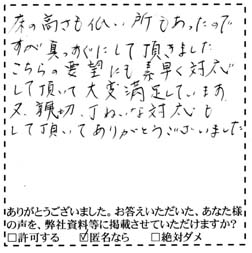 床の高さも低い所もあったので
すべ真っすぐにして頂きました
こちらの要望にも素早く対応
して頂いて大変満足しています。
又、親切、丁ねいな対応も
して頂いてありがとうございました
ありがとうございました。お答えいただいた、あなた様
の声を、弊社資料等に掲載させていただけますか？
□許可する ☑匿名なら □絶対ダメ